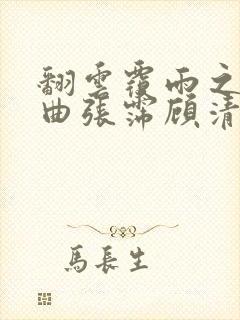 翻雲覆雨之
曲張霈顧清
馬長生